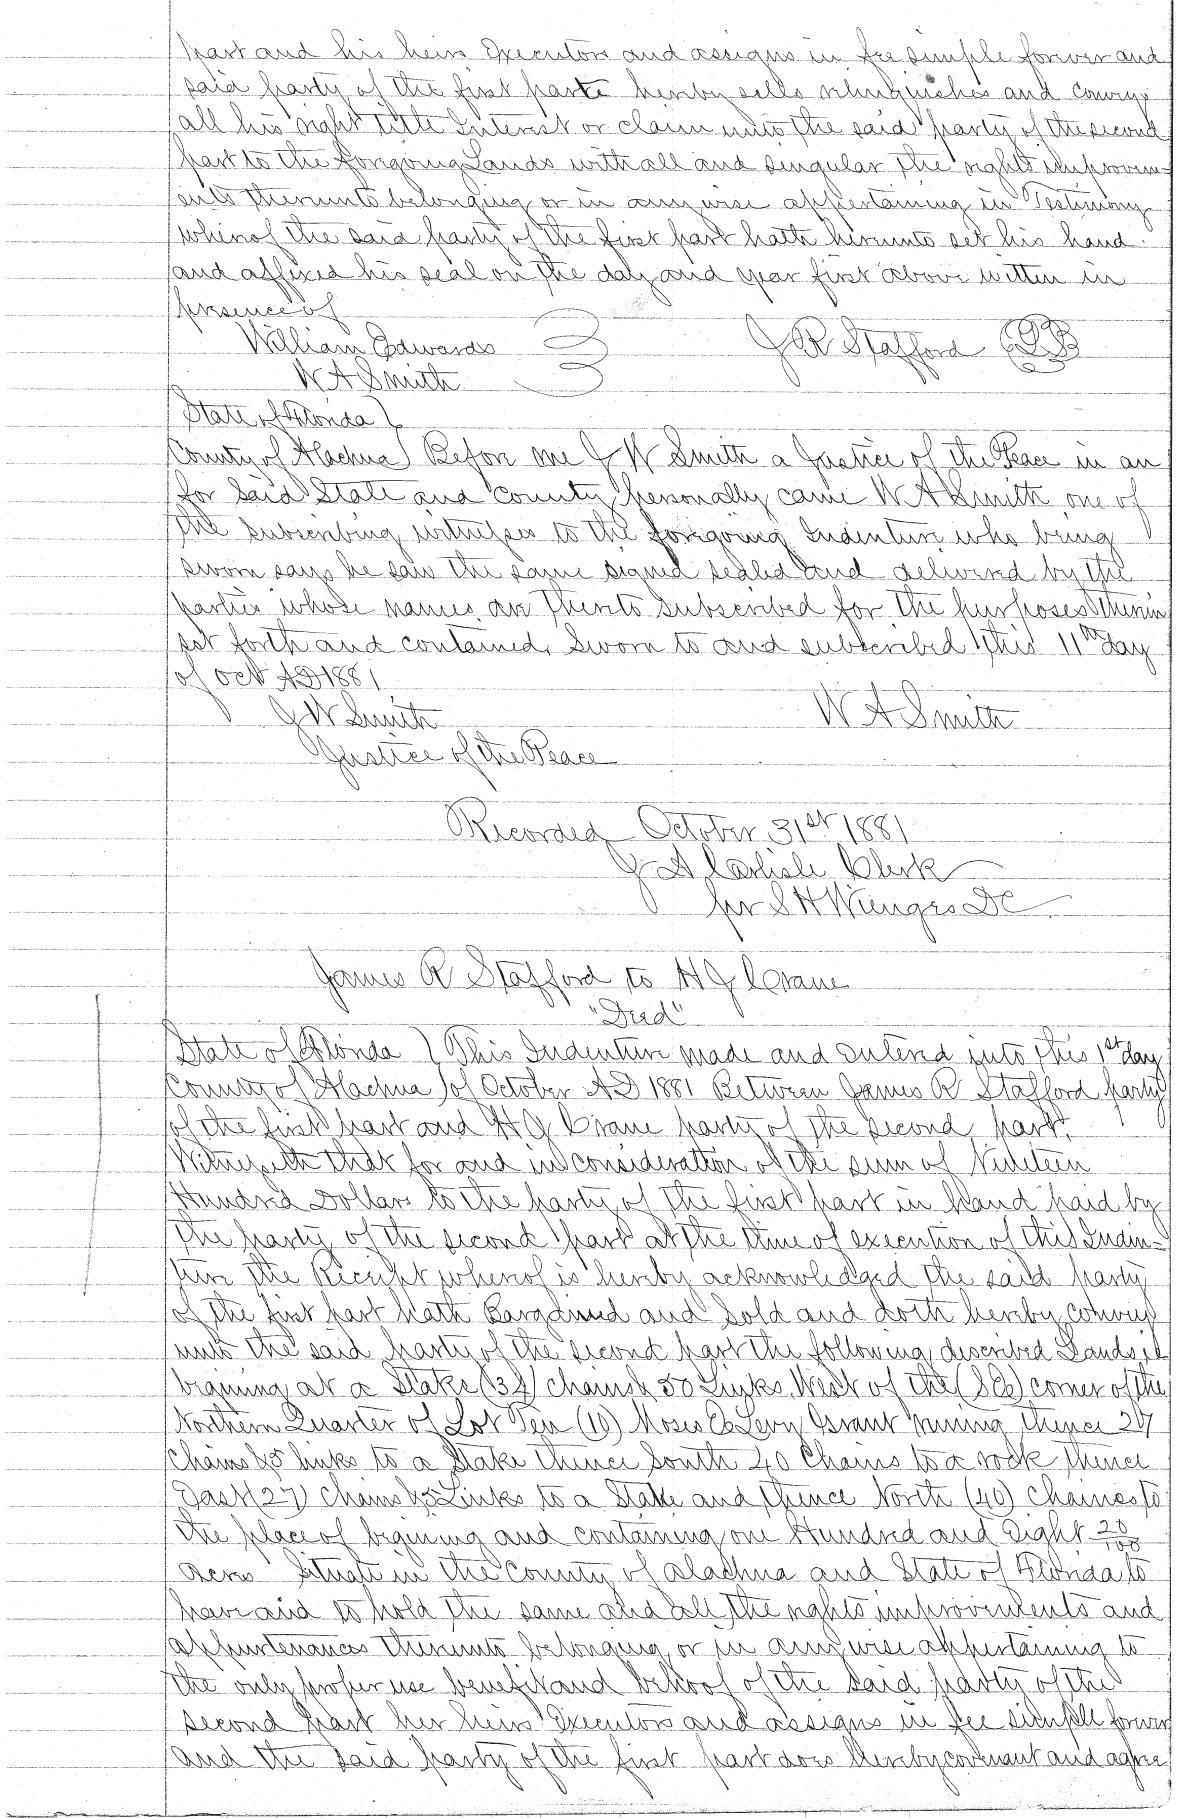 part and his heirs Executors and assigns in fee simple forever and
said party of the first parte hereby sells relinquishes and conveys
all his right title Interest or claim unto the said party of the second
part to the foregoing Lands with all and singular the rights improvem-
ents thereunto belonging or in anywise appertaining in Testimony
whereof the said party of the first part hath hereunto set his hand
and affixed his seal on the day and year first above written in
presence of
William Edwards J R Stafford
W A Smith
State of Florida }
County of Alachua } Before me J W Smith a Justice of the Peace in an
for said State and County personally came W A Smith one of
the Subscribing witnesses to the foregoing Indenture who being
sworn says he saw the same signed sealed and delivered by the
parties whose names are thereto subscribed for the purposes therein
set forth and contained, Sworn to and subscribed this 11th day
of Oct AD 1881
J W Smith W A Smith
Justice of the Peace
Recorded October 31st 1881
J A Carlisle Clerk
per S H Wienges DC
James R Stafford to H J Crane
"Deed"
State of Florida } This Indenture made and entered into this 1st day
County of Alachua } of October AD 1881 Between James R Stafford party
of the first part and H J Crane party of the second part.
Witnesseth that for and in consideration of the sum of Nineteen
Hundred Dollars to the party of the first part in hand paid by
the party of the second part at the time of execution of this Inden-
ture the Receipt whereof is hereby acknowledged the said party
of the first part hath Bargained and Sold and doth hereby convey
unto the said party of the second part the following described Lands
begining at a Stake chains & 50 Links West of the (SE) corner of the
Northern Quarter of Lot Ten (10) Moses E Levy Grant runing thence 27
chains &5 links to a Stake thence South 40 Chains to a rock thence
East (27) chains &5 Links to a Stake and thence North (40) Chaines to
the place of begining and containing one Hundred and Eight 20/100
acres Situate in the County of Alachua and State of Florida to
have and to hold the same and all the rights improvements and
appurtenances thereunto belonging or in anywise appertaining to
the only proper use benefit and behoof of the said party of the
second part her heirs Executors and assigns in fee simple forever
and the said party of the first part does hereby covenant and agree